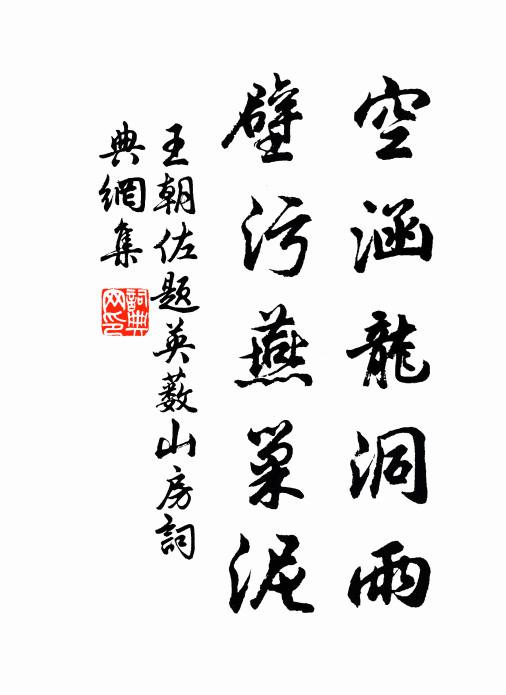 空涵龍洞雨
壁污燕巢泥
王朝佐題英藪山房詞
典網集
詞典網印